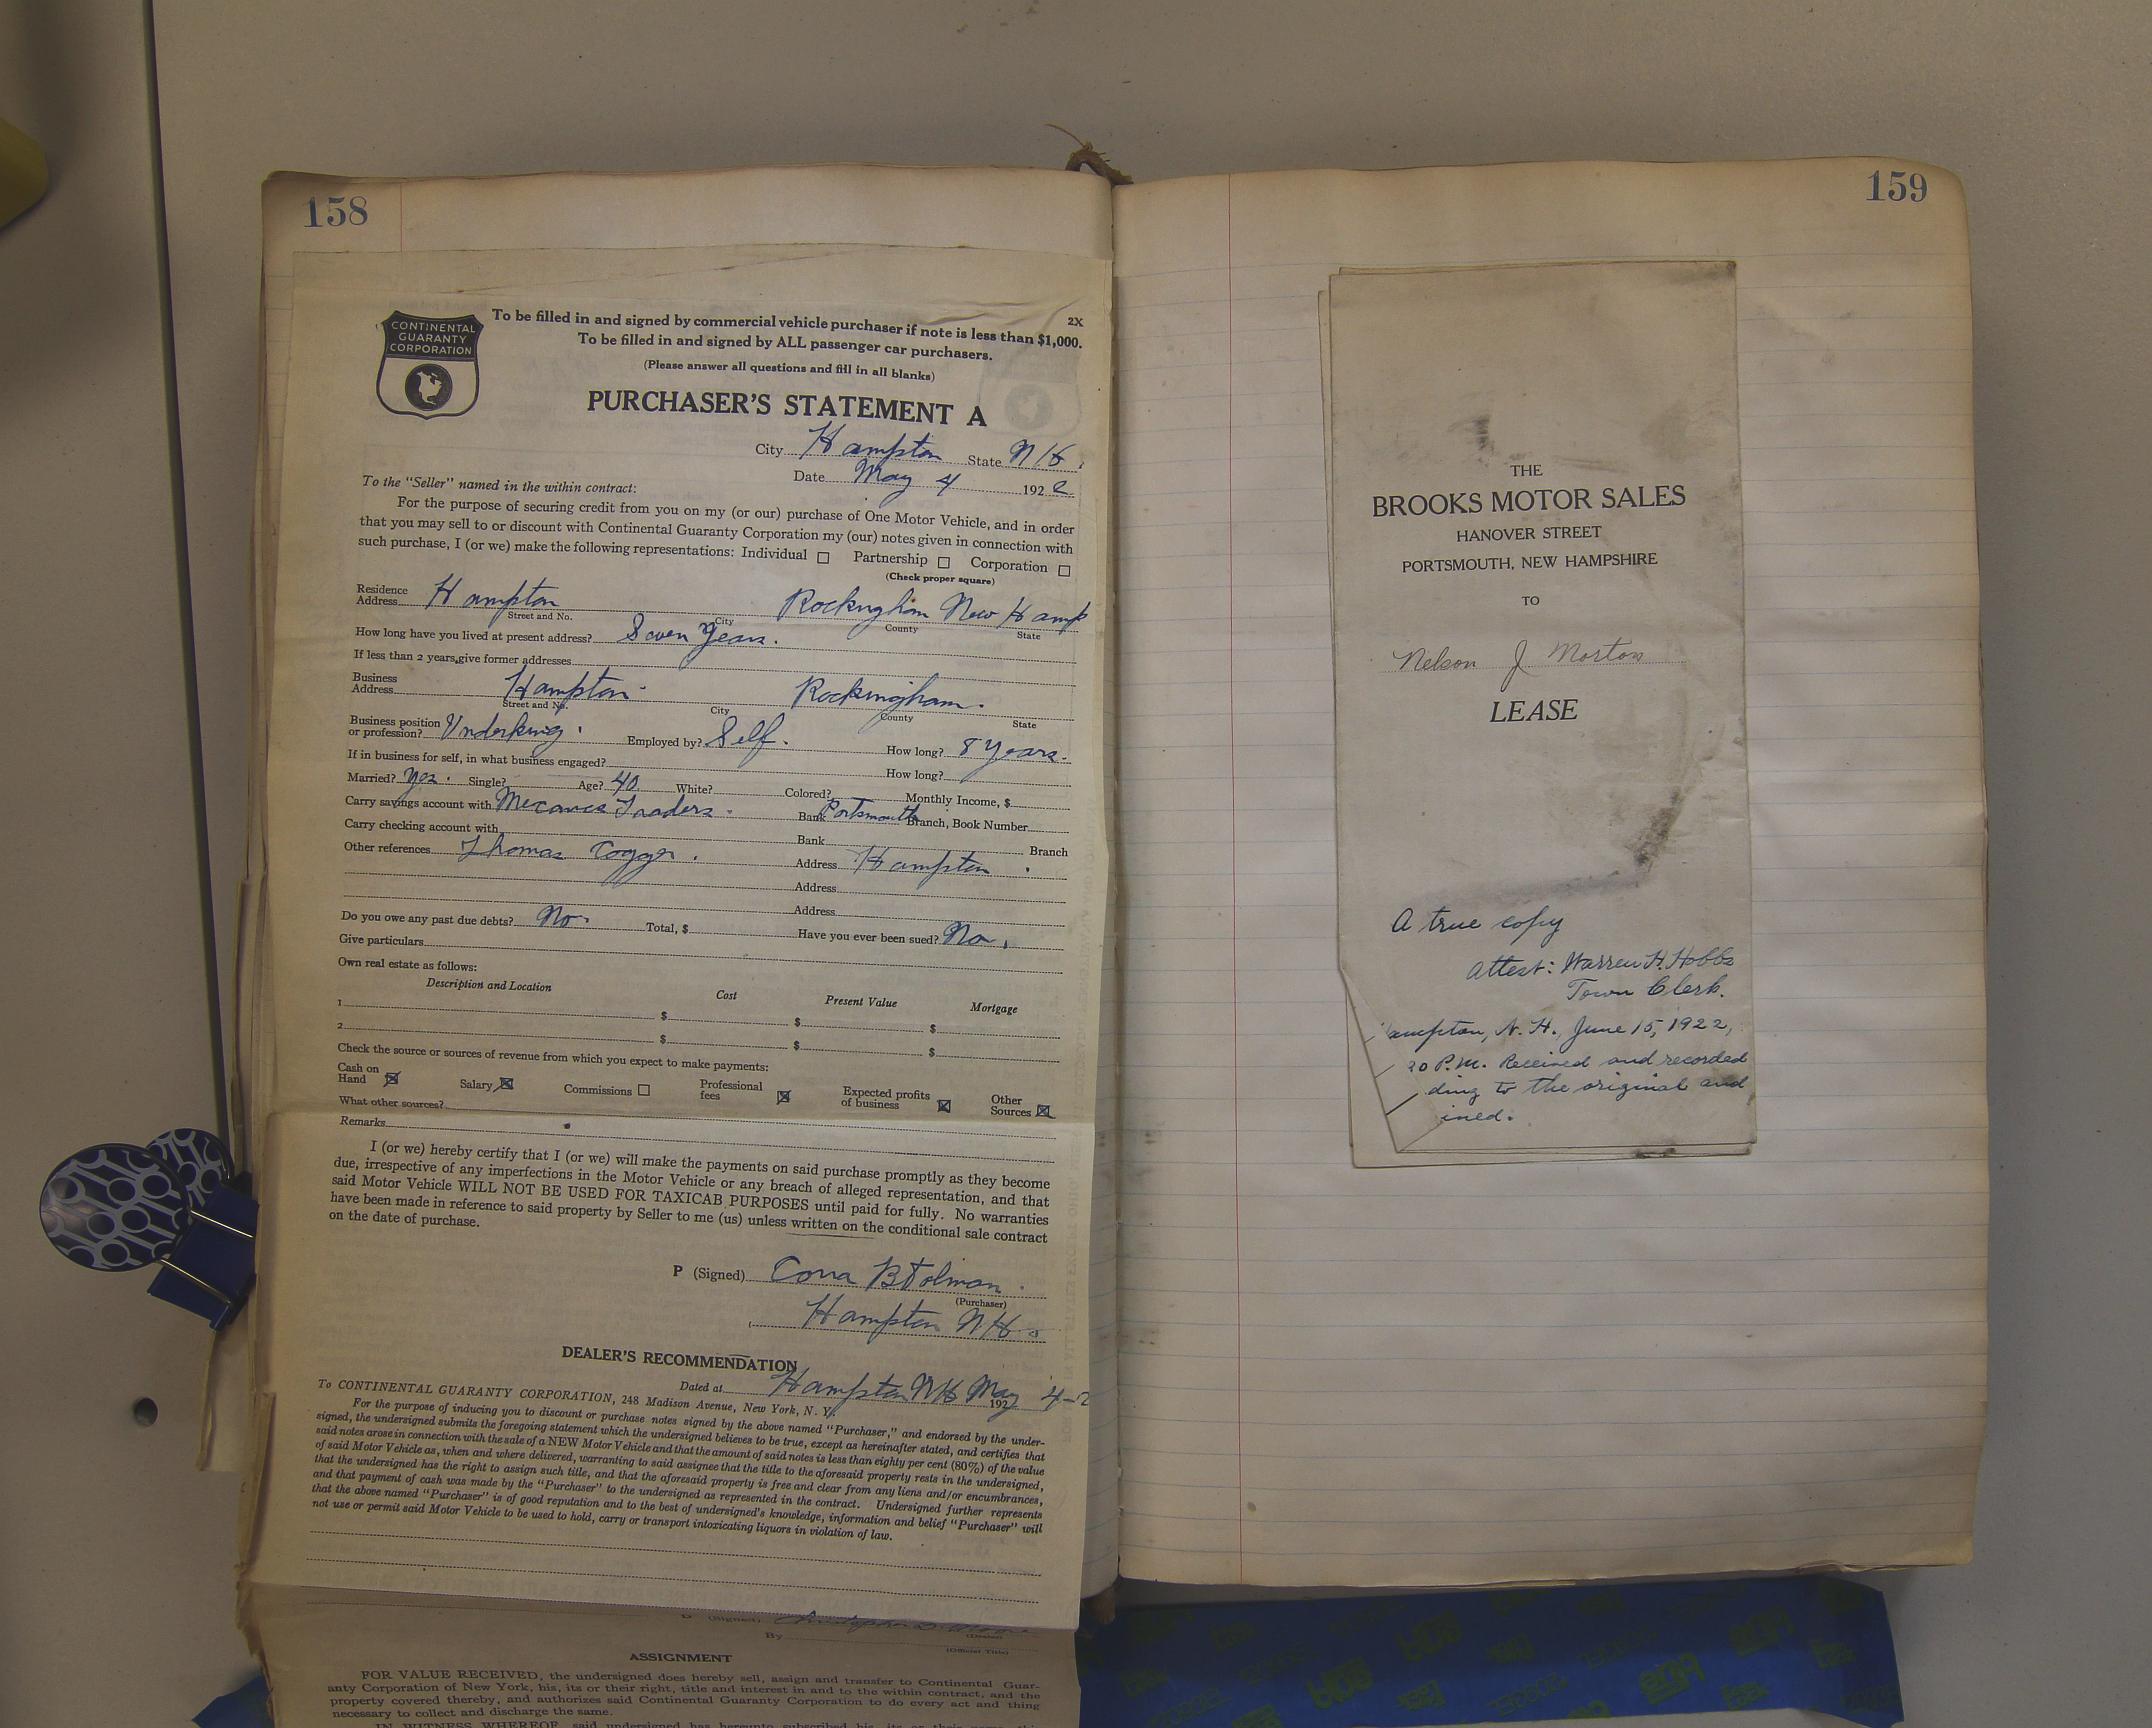 158
CONTINENTAL
GUARANTY
CORPORATION
2X
To be filled in and signed by commercial vehicle purchaser if note is less than $1,000.
To be filled in and signed by ALL passenger car purchasers.
(Please answer all questions and fill in all blanks)
PURCHASER'S STATEMENT A
City Hampton State N H.
Date May 4 1922
To the "Seller" named in the within contract:
For the purpose of securing credit from you on my (or our) purchase of One Motor Vehicle, and in order
that you may sell to or discount with Continental Guaranty Corporation my (our) notes given in connection with
such purchase, I (or we) make the following representations: Individual ☐ Partnership ☐ Corporation ☐
(Check proper square)
Residence
Address Hampton Rockingham New Hamp
Street and No. City County State
How long have you lived at present address? Seven Years.
If less than 2 years, give former addresses
Business
Address Hampton. Rockingham.
Street and No. City County State
Business position
or profession? Underking. Employed by? Self. How long? 8 Years.
If in business for self, in what business engaged? How long?
Married? Yes. Single? Age? 40 White? Colored? Monthly Income, $
Carry savings account with Mecanics Traders. Bank Portsmouth Branch, Book Number
Carry checking account with Bank Branch
Other references Thomas Address Hampton.
Address
Address
Do you owe any past due debts? No. Total, $ Have you ever been sued? No.
Give particulars
Own real estate as follows:
Description and Location Cost Present Value Mortgage
1 $ $ $
2 $ $ $
Check the source or sources of revenue from which you expect to make payments:
Cash on
Hand ☒ Salary ☒ Commissions ☐ Professional
fees ☒ Expected profits
of business ☒ Other
Sources ☒
What other sources?
Remarks
I (or we) hereby certify that I (or we) will make the payments on said purchase promptly as they become
due, irrespective of any imperfections in the Motor Vehicle or any breach of alleged representation, and that
said Motor Vehicle WILL NOT BE USED FOR TAXICAB PURPOSES until paid for fully. No warranties
have been made in reference to said property by Seller to me (us) unless written on the conditional sale contract
on the date of purchase.
P (Signed) Cora B Tolman.
(Purchaser)
Hampton N H.
DEALER'S RECOMMENDATION
Dated at Hampton N H May 4-2 192
To CONTINENTAL GUARANTY CORPORATION, 248 Madison Avenue, New York, N. Y.
For the purpose of inducing you to discount or purchase notes signed by the above named "Purchaser," and endorsed by the under-
signed, the undersigned submits the foregoing statement which the undersigned believes to be true, except as hereinafter stated, and certifies that
said notes arose in connection with the sale of a NEW Motor Vehicle and that the amount of said notes is less than eighty per cent (80%) of the value
of said Motor Vehicle as, when and where delivered, warranting to said assignee that the title to the aforesaid property rests in the undersigned,
that the undersigned has the right to assign such title, and that the aforesaid property is free and clear from any liens and/or encumbrances,
and that payment of cash was made by the "Purchaser" to the undersigned as represented in the contract. Undersigned further represents
that the above named "Purchaser" is of good reputation and to the best of undersigned's knowledge, information and belief "Purchaser" will
not use or permit said Motor Vehicle to be used to hold, carry or transport intoxicating liquors in violation of law.
D (Signed)
(Dealer)
By
(Official Title)
ASSIGNMENT
FOR VALUE RECEIVED, the undersigned does hereby sell, assign and transfer to Continental Guar-
anty Corporation of New York, his, its or their right, title and interest in and to the within contract, and the
property covered thereby, and authorizes said Continental Guaranty Corporation to do every act and thing
necessary to collect and discharge the same.
IN WITNESS WHEREOF, said undersigned has hereunto subscribed his, its or their name, this
159
THE
BROOKS MOTOR SALES
HANOVER STREET
PORTSMOUTH, NEW HAMPSHIRE
TO
Nelson J Morton
LEASE
A true copy
Attest: Warren H. Hobbs
Town Clerk.
ampton, N. H., June 15, 1922,
20 P.M. Received and recorded
ding to the original and
ined.